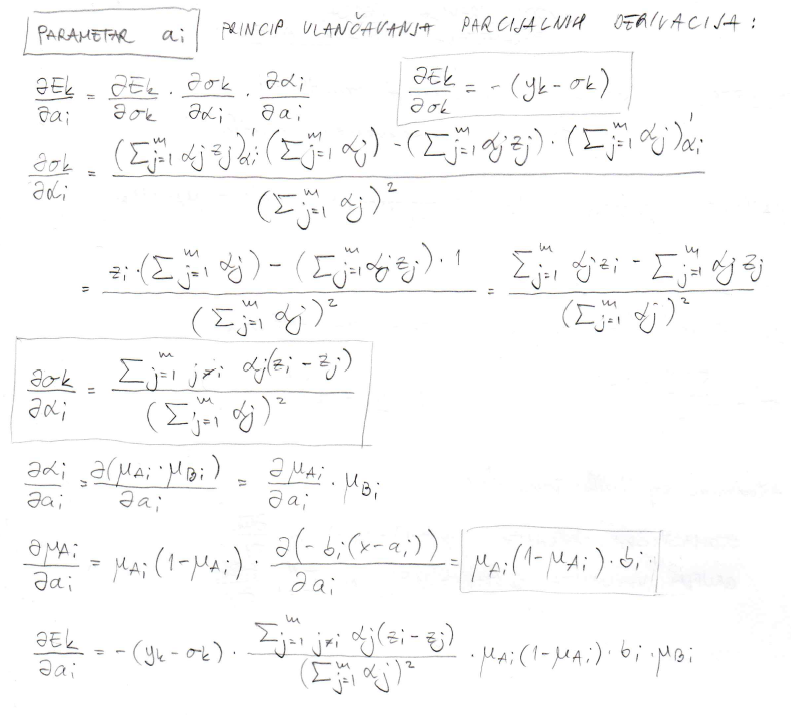 PARAMETAR ai PRINCIP ULANČAVANJA PARCIJALNIH DERIVACIJA :
∂Ek/∂ai = ∂Ek/∂ok · ∂ok/∂αi · ∂αi/∂ai   ∂Ek/∂ok = -(yk - ok)
∂ok/∂αi = ((∑_{j=1}^m αj zj)'αi (∑_{j=1}^m αj) - (∑_{j=1}^m αj zj) · (∑_{j=1}^m αj)'αi) / (∑_{j=1}^m αj)^2
= (zi · (∑_{j=1}^m αj) - (∑_{j=1}^m αj zj) · 1) / (∑_{j=1}^m αj)^2 = (∑_{j=1}^m αj zi - ∑_{j=1}^m αj zj) / (∑_{j=1}^m αj)^2
∂ok/∂αi = (∑_{j=1}^m j≠i αj(zi - zj)) / (∑_{j=1}^m αj)^2
∂αi/∂ai = ∂(μAi · μBi)/∂ai = ∂μAi/∂ai · μBi
∂μAi/∂ai = μAi (1-μAi) · ∂(-bi(x-ai))/∂ai = μAi (1-μAi) · bi
∂Ek/∂ai = -(yk - ok) · (∑_{j=1}^m j≠i αj(zi - zj)) / (∑_{j=1}^m αj)^2 · μAi (1-μAi) · bi · μBi